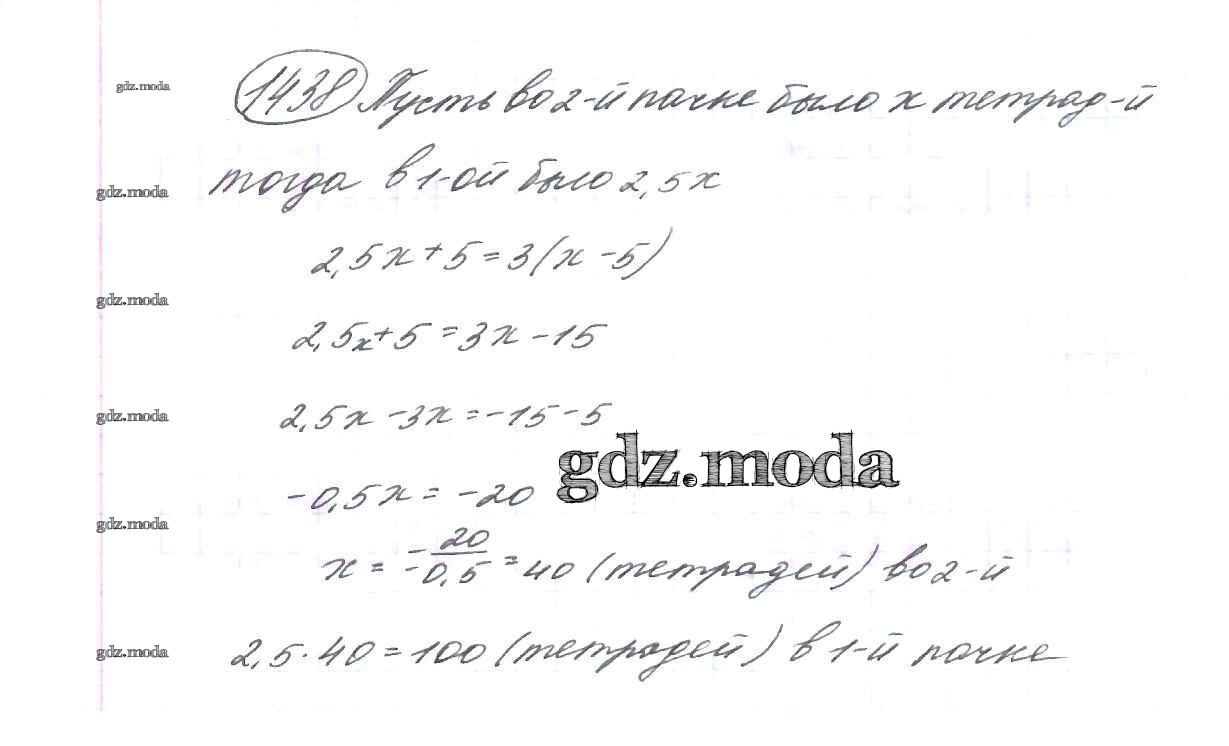 1438 Пусть во 2-й пачке было х тетрад-й
gdz.moda
тогда в 1-ой было 2,5х
gdz.moda
2,5х + 5 = 3(х - 5)
gdz.moda
2,5х + 5 = 3х - 15
2,5х - 3х = -15 - 5
gdz.moda
gdz.moda
-0,5х = -20
gdz.moda
х = -20/-0,5 = 40 (тетрадей) во 2-й
2,5 · 40 = 100 (тетрадей) в 1-й пачке
gdz.moda